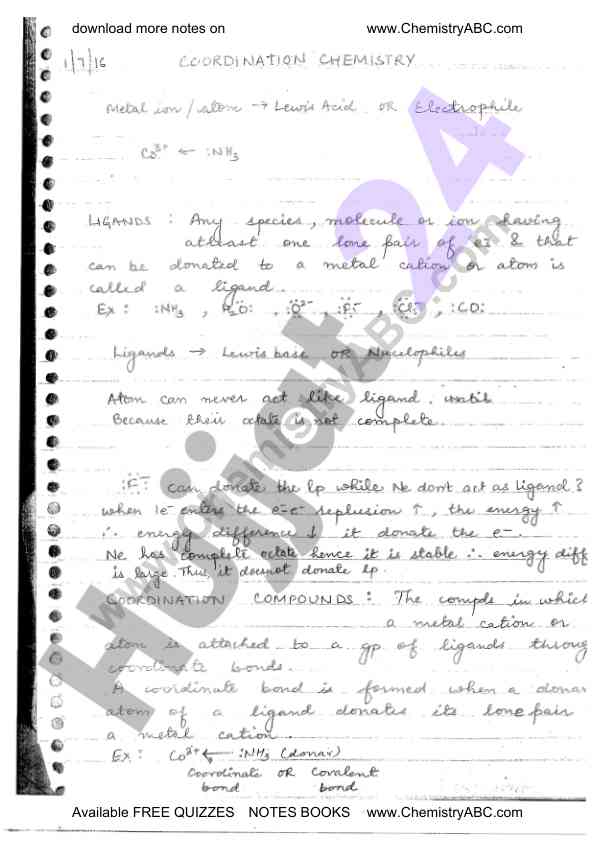 download more notes on www.ChemistryABC.com
1/7/16 COORDINATION CHEMISTRY
Metal ion / atom → Lewis Acid OR Electrophile
Co³⁺ ← :NH₃
LIGANDS : Any species, molecule or ion having
atleast one lone pair of e⁻s & that
can be donated to a metal cation or atom is
called a ligand.
Ex : :NH₃ , H₂O: , :O²⁻ , :F⁻ , :Cl⁻ , :CO:
Ligands → Lewis base OR Nucelophiles
Atom can never act like ligand.
Because their octate is not complete.
:F⁻ can donate the lp while Ne dont act as ligand?
when 1e⁻ enters the e⁻e⁻ replusion ↑, the energy ↑
∴ energy difference ↓ it donate the e⁻.
Ne has complete octate hence it is stable ∴ energy diff
is large. Thus, it doesnot donate lp.
COORDINATION COMPOUNDS : The compds in which
a metal cation or
atom is attached to a gp of ligands throug
coordinate bonds.
A coordinate bond is formed when a donar
atom of a ligand donates its lone pair
a metal cation.
Ex : Co³⁺ ← :NH₃ (donar)
Coordinate OR Covalent
bond bond
Hújjat 24
www.ChemistryABC.com
Available FREE QUIZZES NOTES BOOKS www.ChemistryABC.com